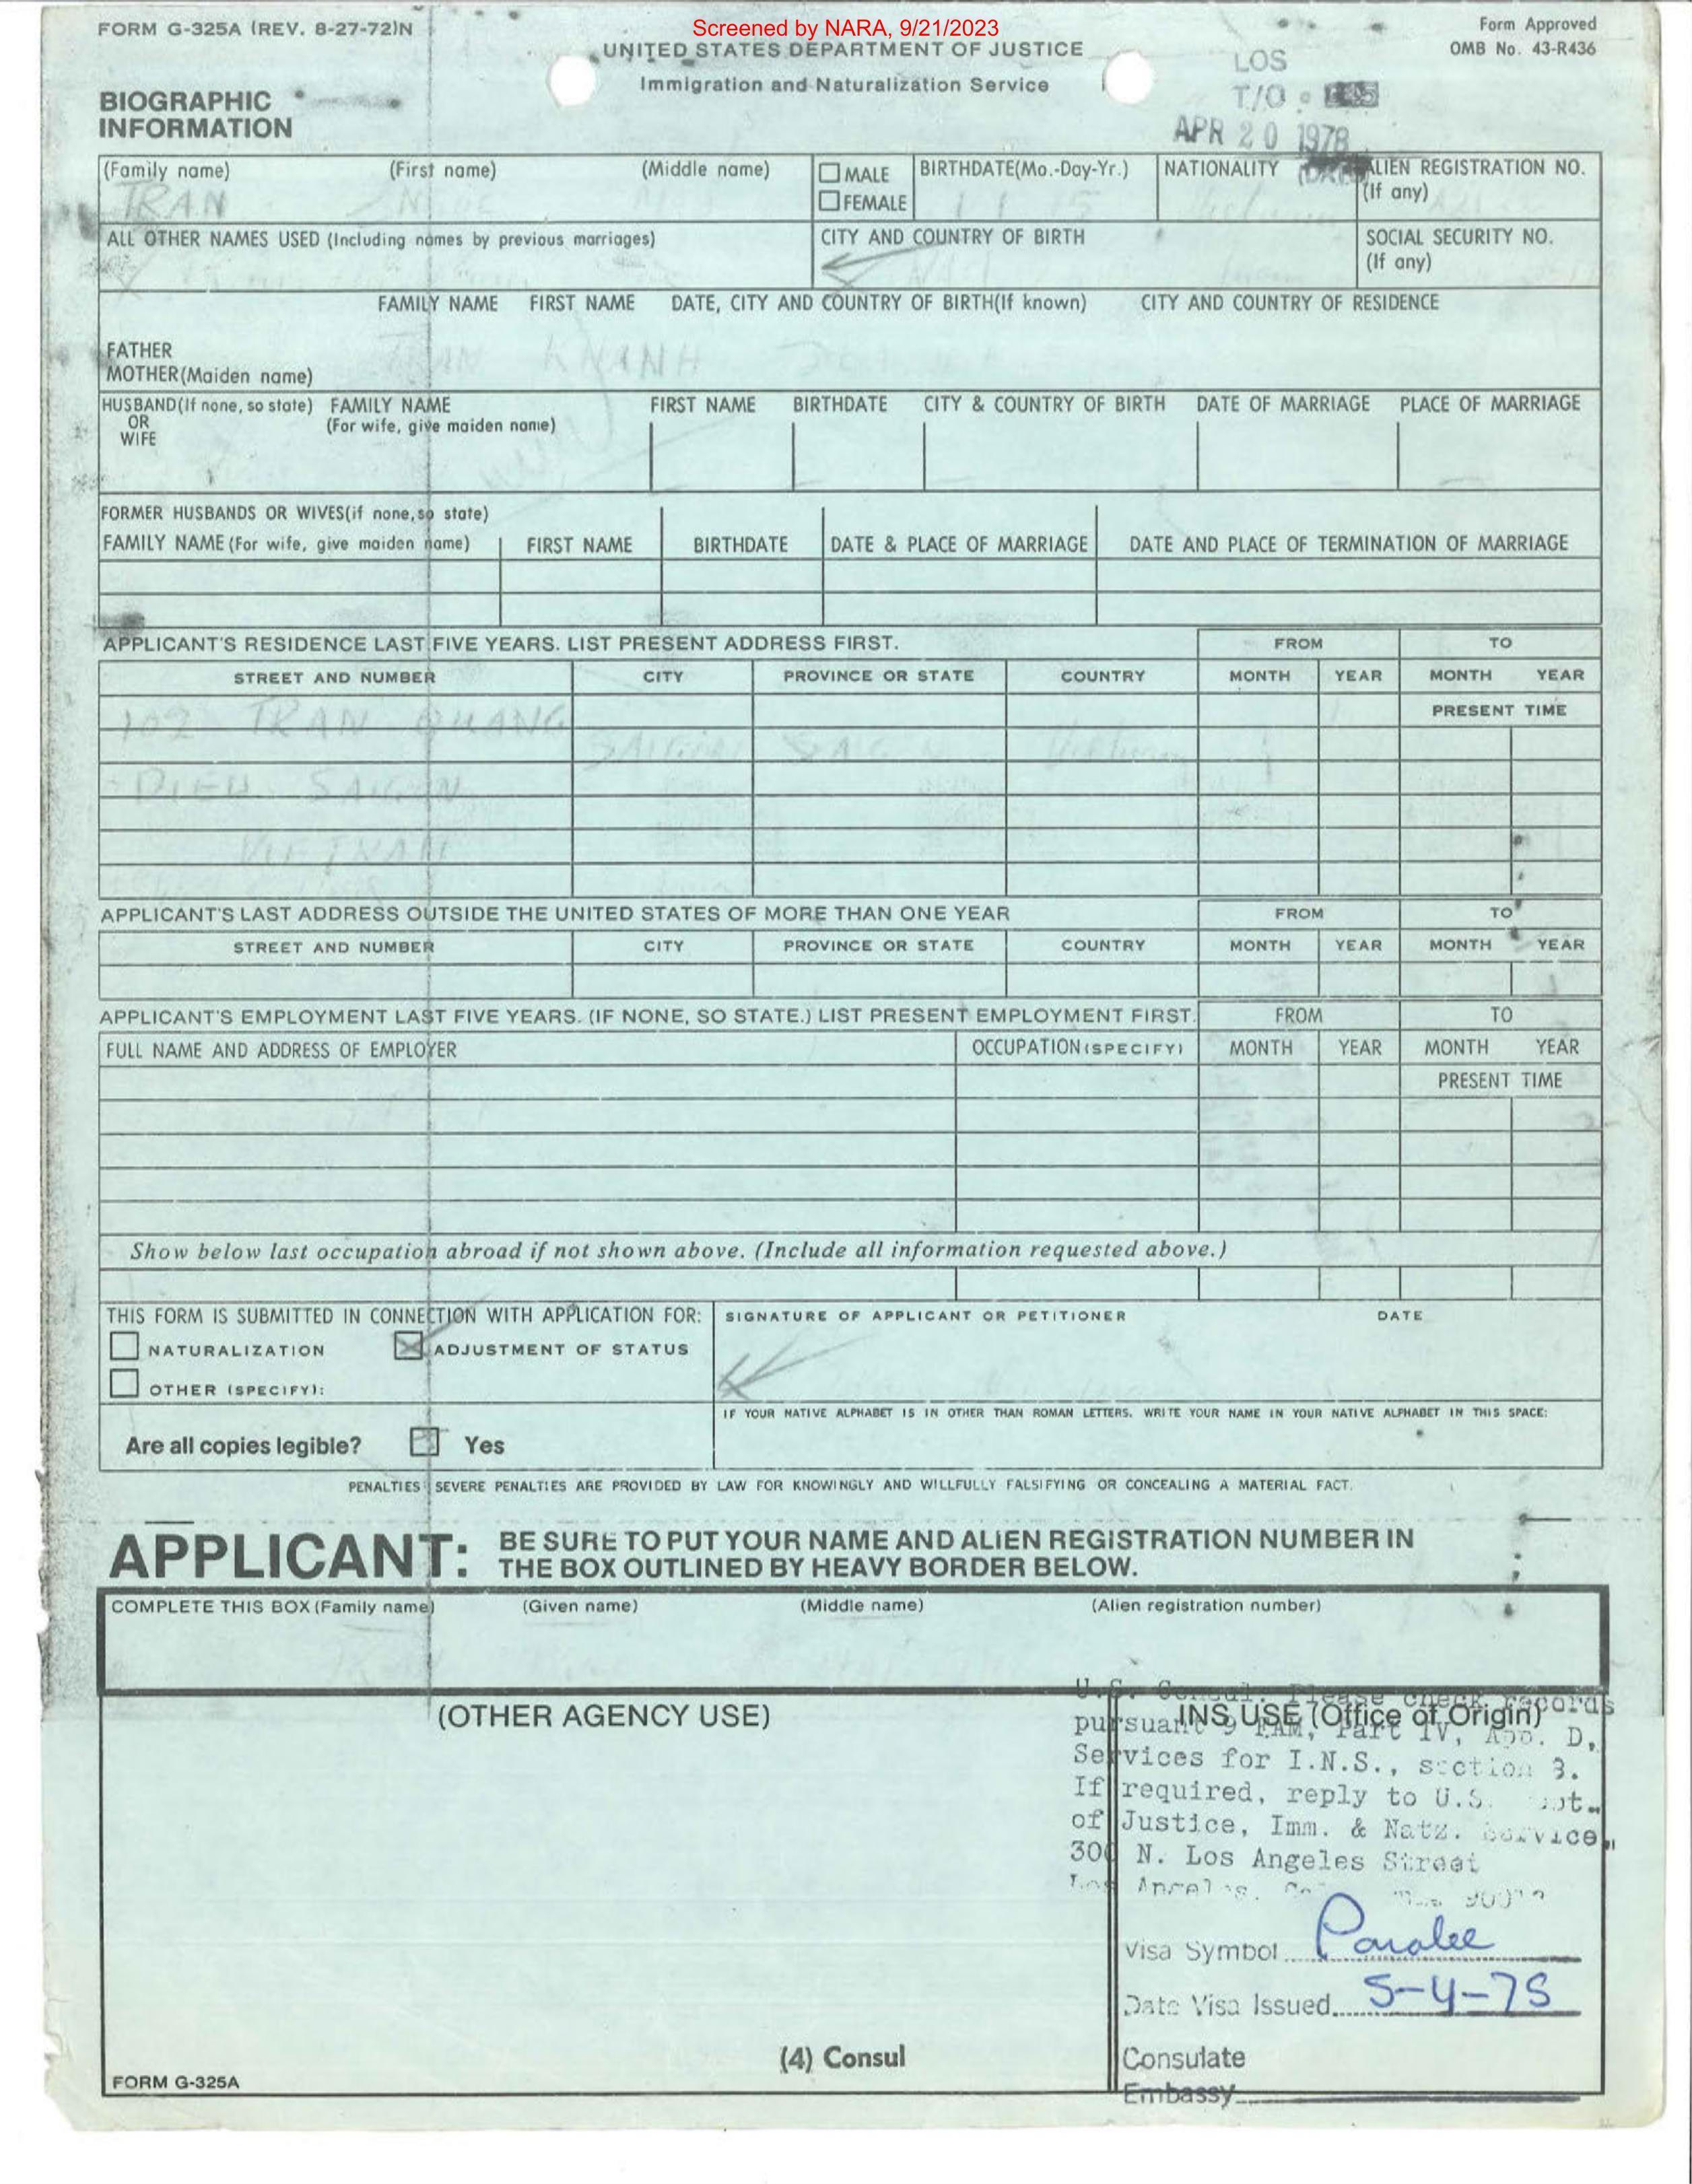 Screened by NARA, 9/21/2023
FORM G-325A (REV. 8-27-72)N
UNITED STATES DEPARTMENT OF JUSTICE
Immigration and Naturalization Service
Form Approved
OMB No. 43-R436
LOS
T/O
APR 20 1978
BIOGRAPHIC
INFORMATION
(Family name) (First name) (Middle name) MALE FEMALE BIRTHDATE(Mo.-Day-Yr.) NATIONALITY ALIEN REGISTRATION NO. (If any)
TRAN
ALL OTHER NAMES USED (Including names by previous marriages) CITY AND COUNTRY OF BIRTH SOCIAL SECURITY NO. (If any)
FAMILY NAME FIRST NAME DATE, CITY AND COUNTRY OF BIRTH(If known) CITY AND COUNTRY OF RESIDENCE
FATHER TRAN KHANH
MOTHER(Maiden name)
HUSBAND(If none, so state) OR WIFE FAMILY NAME (For wife, give maiden name) FIRST NAME BIRTHDATE CITY & COUNTRY OF BIRTH DATE OF MARRIAGE PLACE OF MARRIAGE
FORMER HUSBANDS OR WIVES(if none,so state)
FAMILY NAME (For wife, give maiden name) FIRST NAME BIRTHDATE DATE & PLACE OF MARRIAGE DATE AND PLACE OF TERMINATION OF MARRIAGE
APPLICANT'S RESIDENCE LAST FIVE YEARS. LIST PRESENT ADDRESS FIRST. FROM TO
STREET AND NUMBER CITY PROVINCE OR STATE COUNTRY MONTH YEAR MONTH YEAR
102 TRAN QUANG PRESENT TIME
SAIGON Vietnam
DIEU SAIGON
VIETNAM
APPLICANT'S LAST ADDRESS OUTSIDE THE UNITED STATES OF MORE THAN ONE YEAR FROM TO
STREET AND NUMBER CITY PROVINCE OR STATE COUNTRY MONTH YEAR MONTH YEAR
APPLICANT'S EMPLOYMENT LAST FIVE YEARS. (IF NONE, SO STATE.) LIST PRESENT EMPLOYMENT FIRST. FROM TO
FULL NAME AND ADDRESS OF EMPLOYER OCCUPATION (SPECIFY) MONTH YEAR MONTH YEAR
PRESENT TIME
Show below last occupation abroad if not shown above. (Include all information requested above.)
THIS FORM IS SUBMITTED IN CONNECTION WITH APPLICATION FOR: SIGNATURE OF APPLICANT OR PETITIONER DATE
NATURALIZATION ADJUSTMENT OF STATUS
OTHER (SPECIFY):
IF YOUR NATIVE ALPHABET IS IN OTHER THAN ROMAN LETTERS, WRITE YOUR NAME IN YOUR NATIVE ALPHABET IN THIS SPACE:
Are all copies legible? Yes
PENALTIES: SEVERE PENALTIES ARE PROVIDED BY LAW FOR KNOWINGLY AND WILLFULLY FALSIFYING OR CONCEALING A MATERIAL FACT.
APPLICANT: BE SURE TO PUT YOUR NAME AND ALIEN REGISTRATION NUMBER IN
THE BOX OUTLINED BY HEAVY BORDER BELOW.
COMPLETE THIS BOX (Family name) (Given name) (Middle name) (Alien registration number)
(OTHER AGENCY USE) INS USE (Office of Origin)
U.S. Consul. Please check records
pursuant 9 FAM, Part IV, App. D,
Services for I.N.S., section 3.
If required, reply to U.S.
of Justice, Imm. & Natz. Service,
300 N. Los Angeles Street
Los Angeles,
Visa Symbol Paralee
Date Visa Issued 5-4-75
(4) Consul
Consulate
Embassy
FORM G-325A